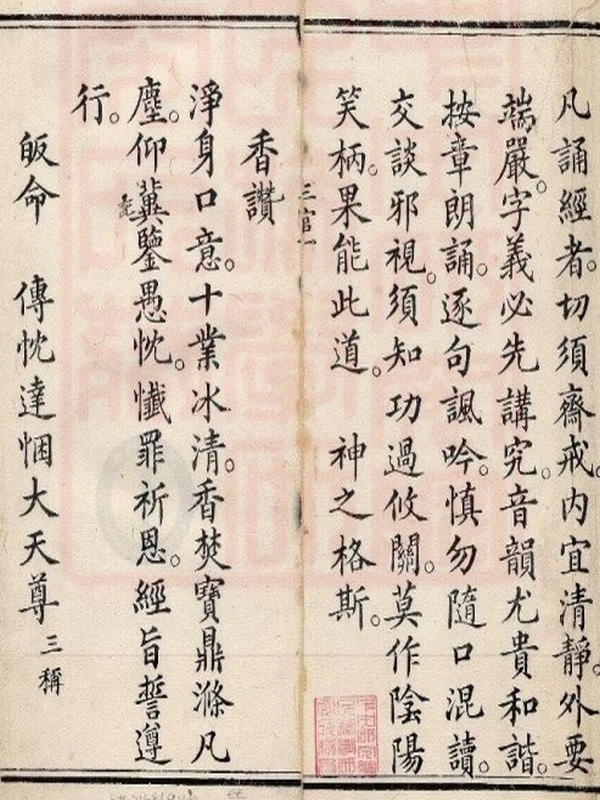 凡誦經者。切須齋戒。内宜清靜。外要
端嚴。字義必先講究。音韻尤貴和諧。
按章朗誦。逐句諷吟。慎勿隨口混讀。
交談邪視。須知功過攸關。莫作陰陽
笑柄。果能此道。 神之格斯。
三官一
香讚
淨身口意。十業冰清。香焚寶鼎滌凡
塵。仰冀鑒愚忱。懺罪祈恩。經旨誓遵
行。
皈命 傳忱達悃大天尊 三稱